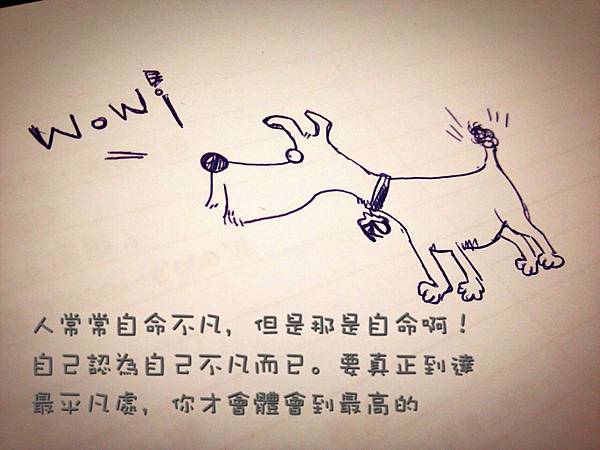 WoW!
人常常自命不凡，但是那是自命啊！
自己認為自己不凡而已。要真正到達
最平凡處，你才會體會到最高的